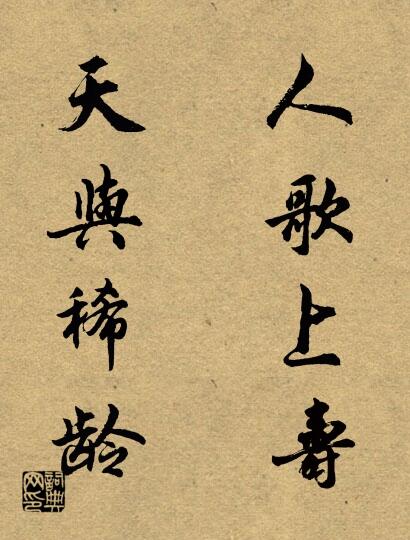 人歌上壽
天與稀龄
詞典网印